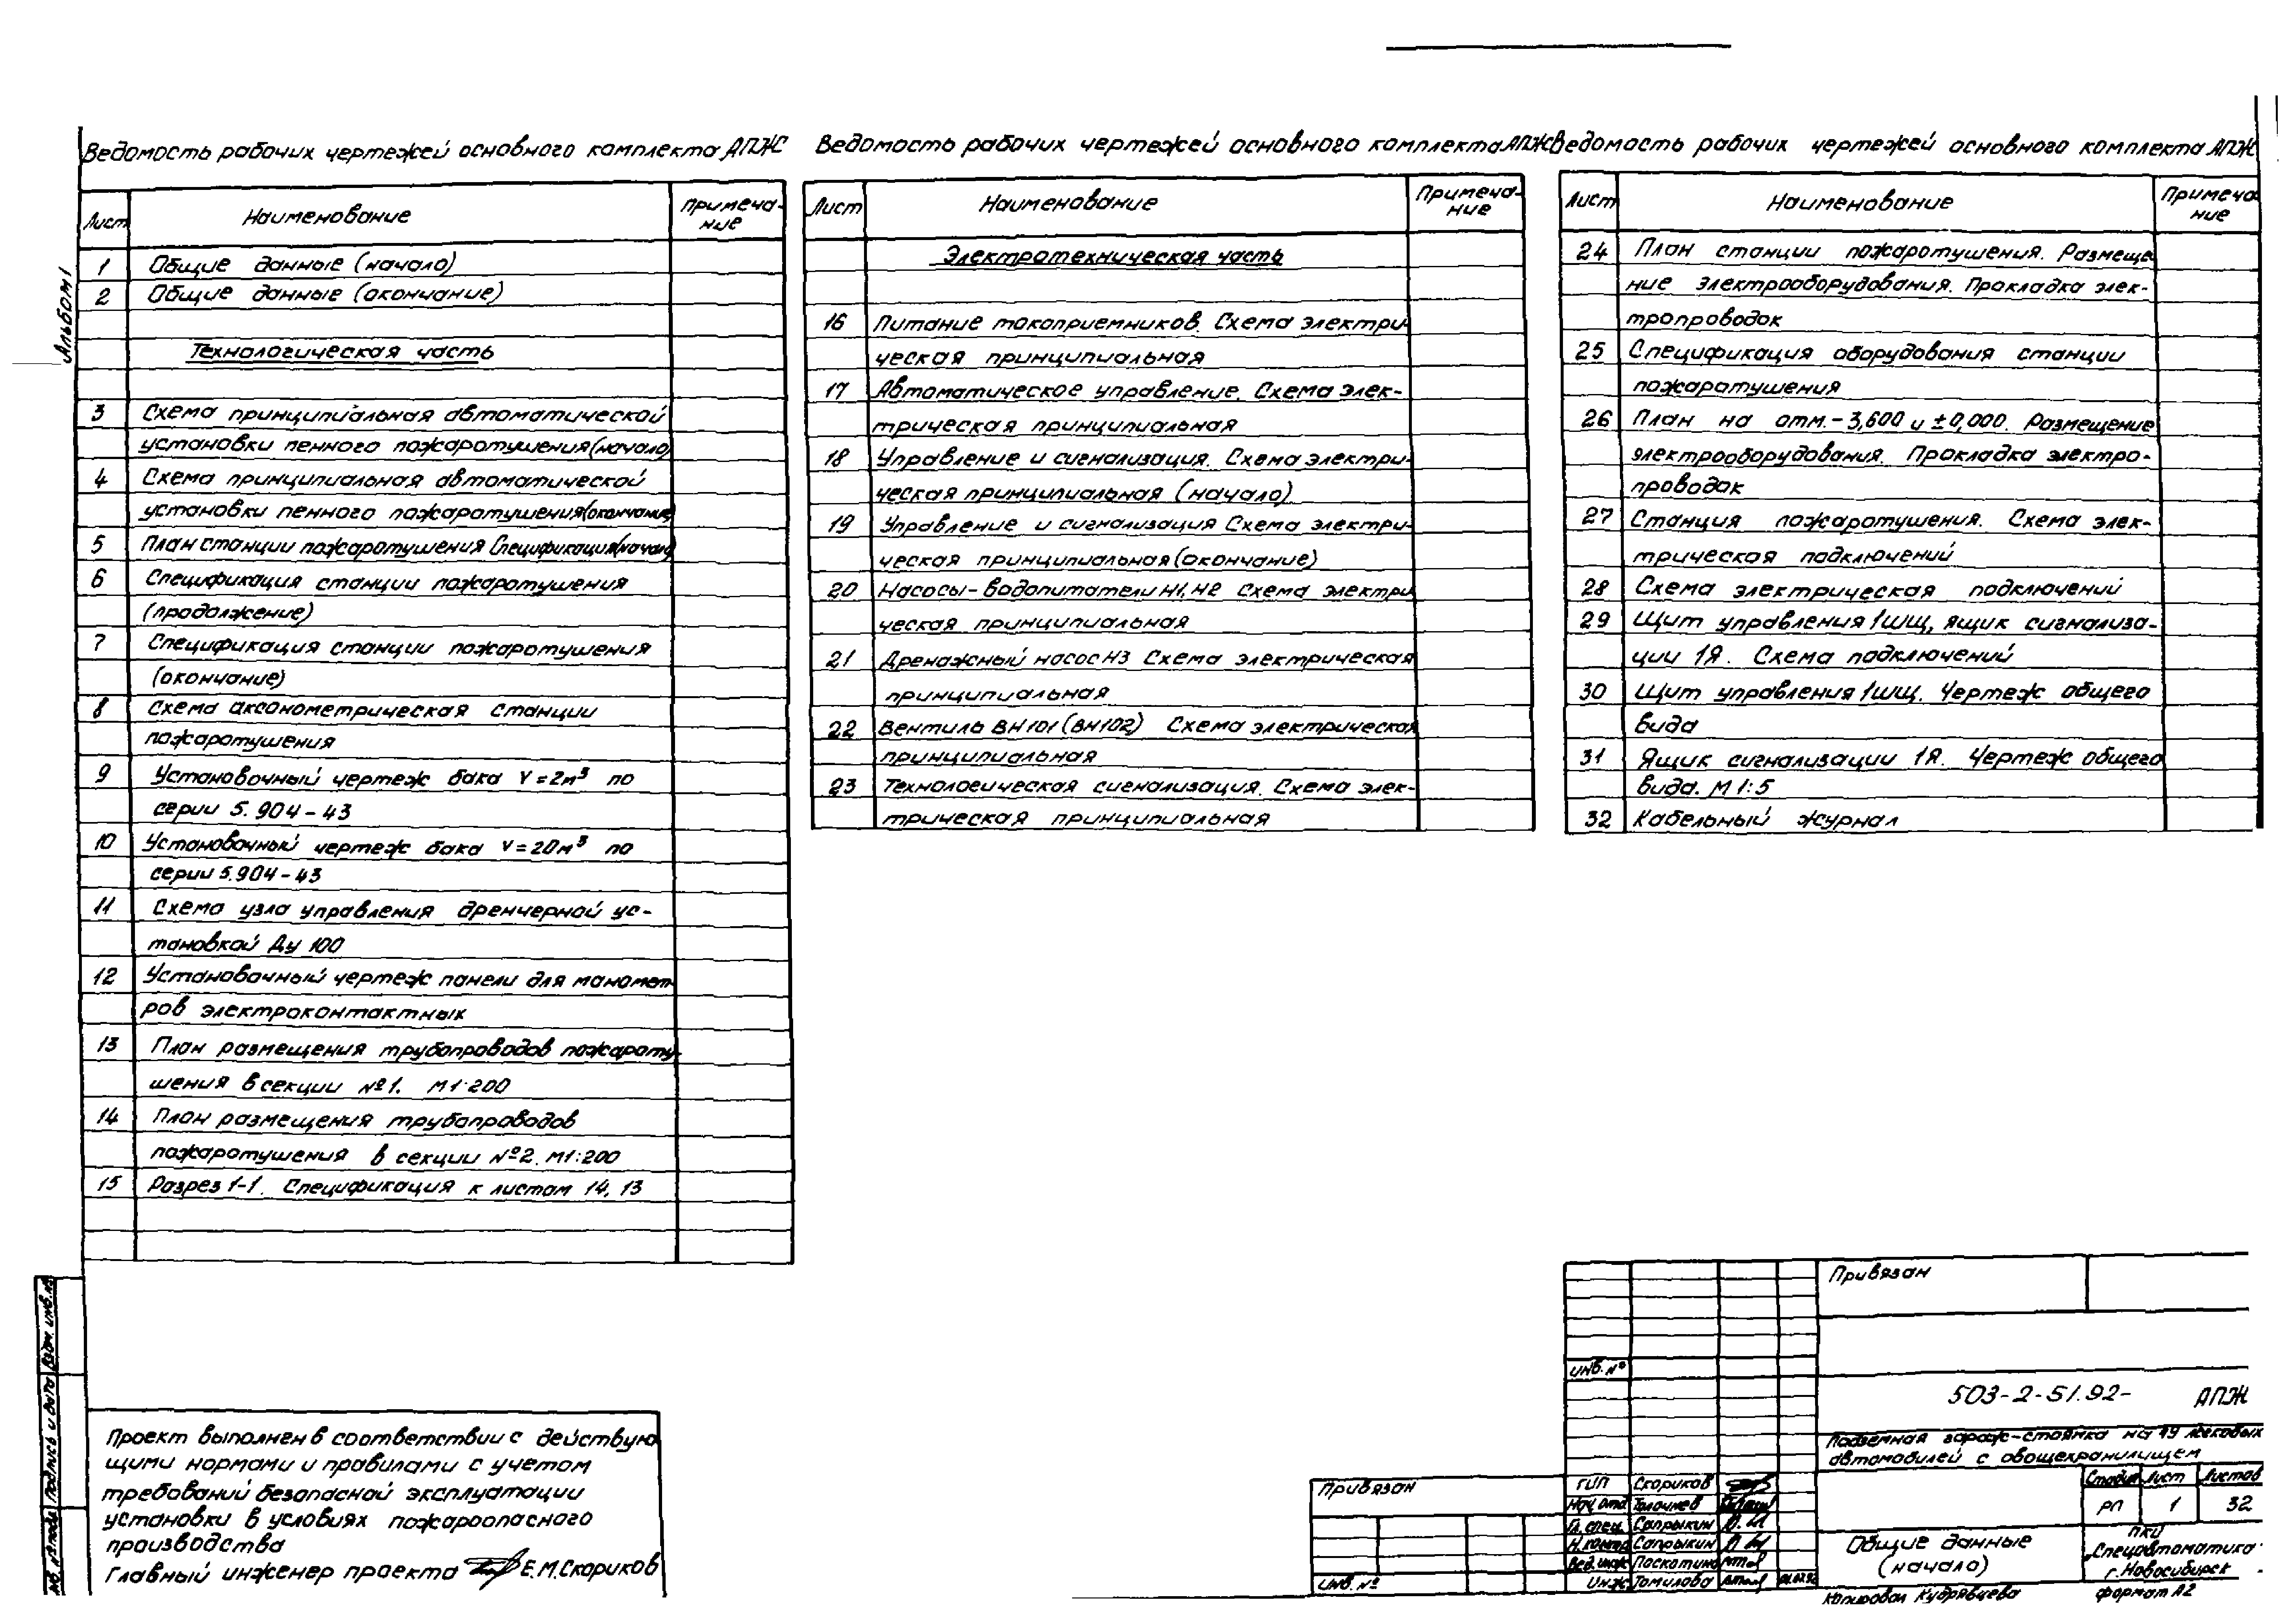 Альбом 1
Ведомость рабочих чертежей основного комплекта АПЖ
Лист Наименование Примеча-
ние
1 Общие данные (начало)
2 Общие данные (окончание)
Технологическая часть
3 Схема принципиальная автоматической
установки пенного пожаротушения (начало)
4 Схема принципиальная автоматической
установки пенного пожаротушения (окончание)
5 План станции пожаротушения Спецификация (начало)
6 Спецификация станции пожаротушения
(продолжение)
7 Спецификация станции пожаротушения
(окончание)
8 Схема аксонометрическая станции
пожаротушения
9 Установочный чертеж бака V=2м³ по
серии 5.904-43
10 Установочный чертеж бака V=20м³ по
серии 5.904-43
11 Схема узла управления дренчерной ус-
тановкой Ду 100
12 Установочный чертеж панели для маномет-
ров электроконтактных
13 План размещения трубопроводов пожароту-
шения в секции №1. М1:200
14 План размещения трубопроводов
пожаротушения в секции №2. М1:200
15 Разрез 1-1. Спецификация к листам 14, 13
Ведомость рабочих чертежей основного комплекта АПЖ
Лист Наименование Примеча-
ние
Электротехническая часть
16 Питание токоприемников. Схема электри-
ческая принципиальная
17 Автоматическое управление. Схема элек-
трическая принципиальная
18 Управление и сигнализация. Схема электри-
ческая принципиальная (начало)
19 Управление и сигнализация Схема электри-
ческая принципиальная (окончание)
20 Насосы-водопитатели Н1, Н2 Схема электри
ческая принципиальная
21 Дренажный насос Н3 Схема электрическая
принципиальная
22 Вентиль ВН101 (ВН102) Схема электрическая
принципиальная
23 Технологическая сигнализация. Схема элек-
трическая принципиальная
Ведомость рабочих чертежей основного комплекта АПЖ
Лист Наименование Примеча-
ние
24 План станции пожаротушения. Размеще
ние электрооборудования. Прокладка элек-
тропроводок
25 Спецификация оборудования станции
пожаротушения
26 План на отм. -3,600 и ±0,000. Размещение
электрооборудования. Прокладка электро-
проводок
27 Станция пожаротушения. Схема элек-
трическая подключений
28 Схема электрическая подключений
29 Щит управления 1ШЩ, ящик сигнализа-
ции 1Я. Схема подключений
30 Щит управления 1ШЩ. Чертеж общего
вида
31 Ящик сигнализации 1Я. Чертеж общего
вида. М 1:5
32 Кабельный журнал
Взам. инв. №
Подпись и дата
Инв. № подл
Проект выполнен в соответствии с действую
щими нормами и правилами с учетом
требований безопасной эксплуатации
установки в условиях пожароопасного
производства
Главный инженер проекта Е.М. Скориков
Привязан
Инв. №
Привязан
Инв. №
503-2-51.92- АПЖ
Подземная гараж-стоянка на 19 легковых
автомобилей с овощехранилищем
ГИП Скориков
Нач. отд
Гл. спец. Сапрыкин
Н. контр Сапрыкин
Вед. инж
Инж Томилова
Стадия Лист Листов
РП 1 32
Общие данные
(начало)
ПКИ
„Спецавтоматика"
г. Новосибирск
Копировал Кудрявцева
формат А2